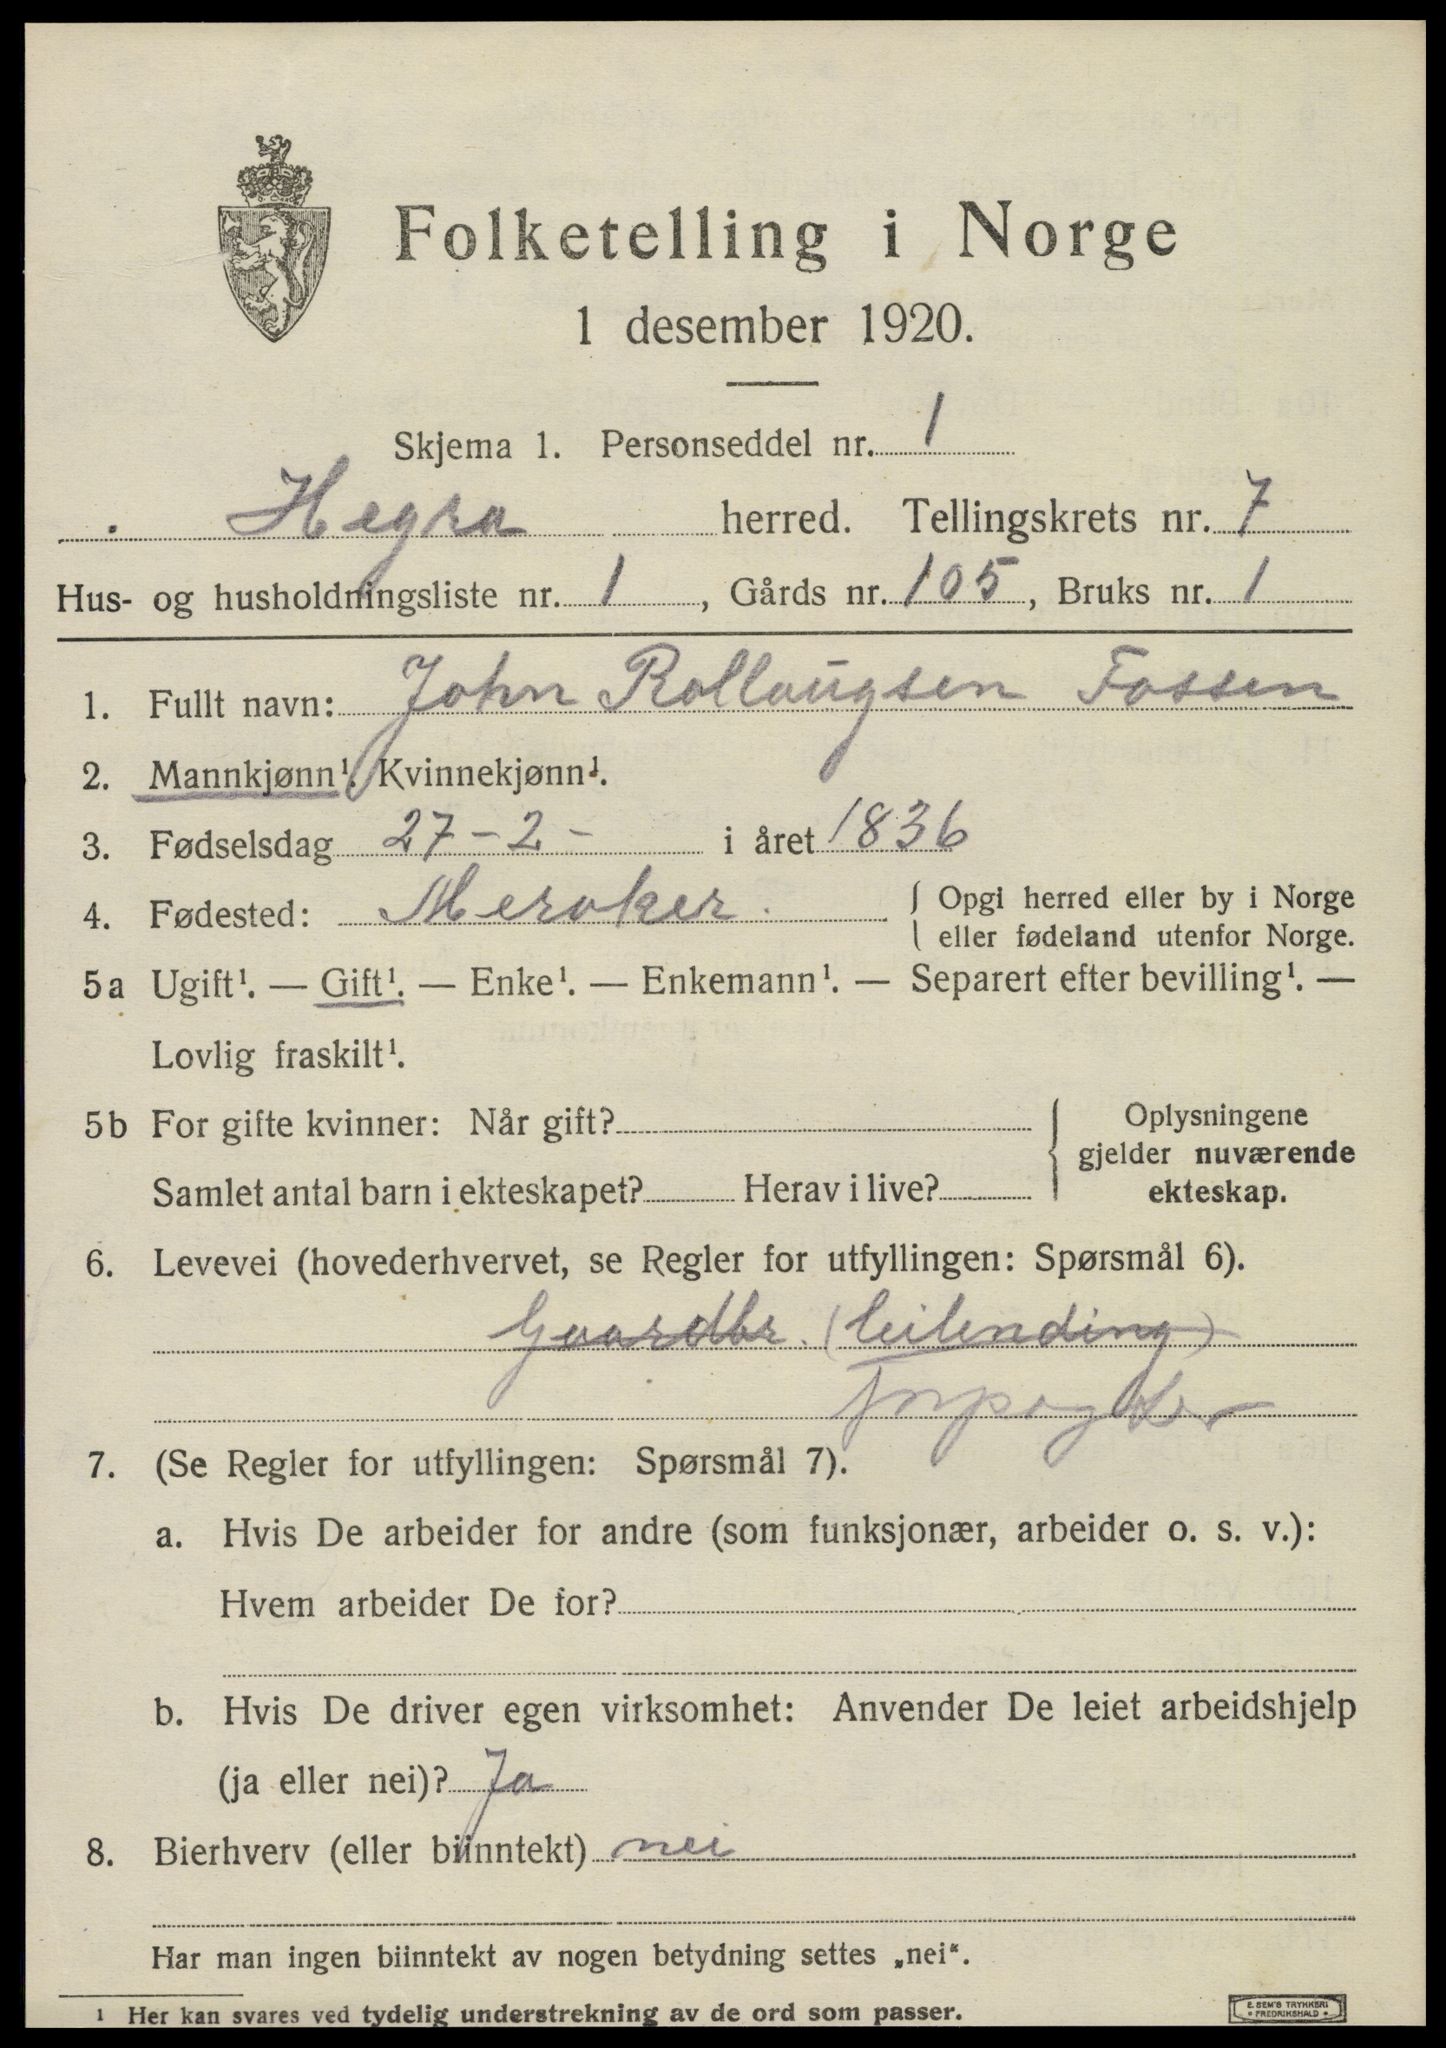 Folketelling i Norge
1 desember 1920.
Skjema 1. Personseddel nr. 1
Hegra herred. Tellingskrets nr. 7
Hus- og husholdningsliste nr. 1, Gårds nr. 105, Bruks nr. 1
1. Fullt navn: John Rollaugsen Fossen
2. Mannkjønn¹. Kvinnekjønn¹.
3. Fødselsdag 27-2- i året 1836
4. Fødested: Meraker. { Opgi herred eller by i Norge
eller fødeland utenfor Norge.
5a Ugift¹. — Gift¹. — Enke¹. — Enkemann¹. — Separert efter bevilling¹. —
Lovlig fraskilt¹.
5b For gifte kvinner: Når gift? { Oplysningene
gjelder nuværende
Samlet antal barn i ekteskapet? Herav i live? ekteskap.
6. Levevei (hovederhvervet, se Regler for utfyllingen: Spørsmål 6).
Gaardbr. (leilending)
Forpagter
7. (Se Regler for utfyllingen: Spørsmål 7).
a. Hvis De arbeider for andre (som funksjonær, arbeider o. s. v.):
Hvem arbeider De for?
b. Hvis De driver egen virksomhet: Anvender De leiet arbeidshjelp
(ja eller nei)? Ja
8. Bierhverv (eller biinntekt) nei
Har man ingen biinntekt av nogen betydning settes „nei“.
¹ Her kan svares ved tydelig understrekning av de ord som passer.
E. SEM'S TRYKKERI
FREDRIKSHALD